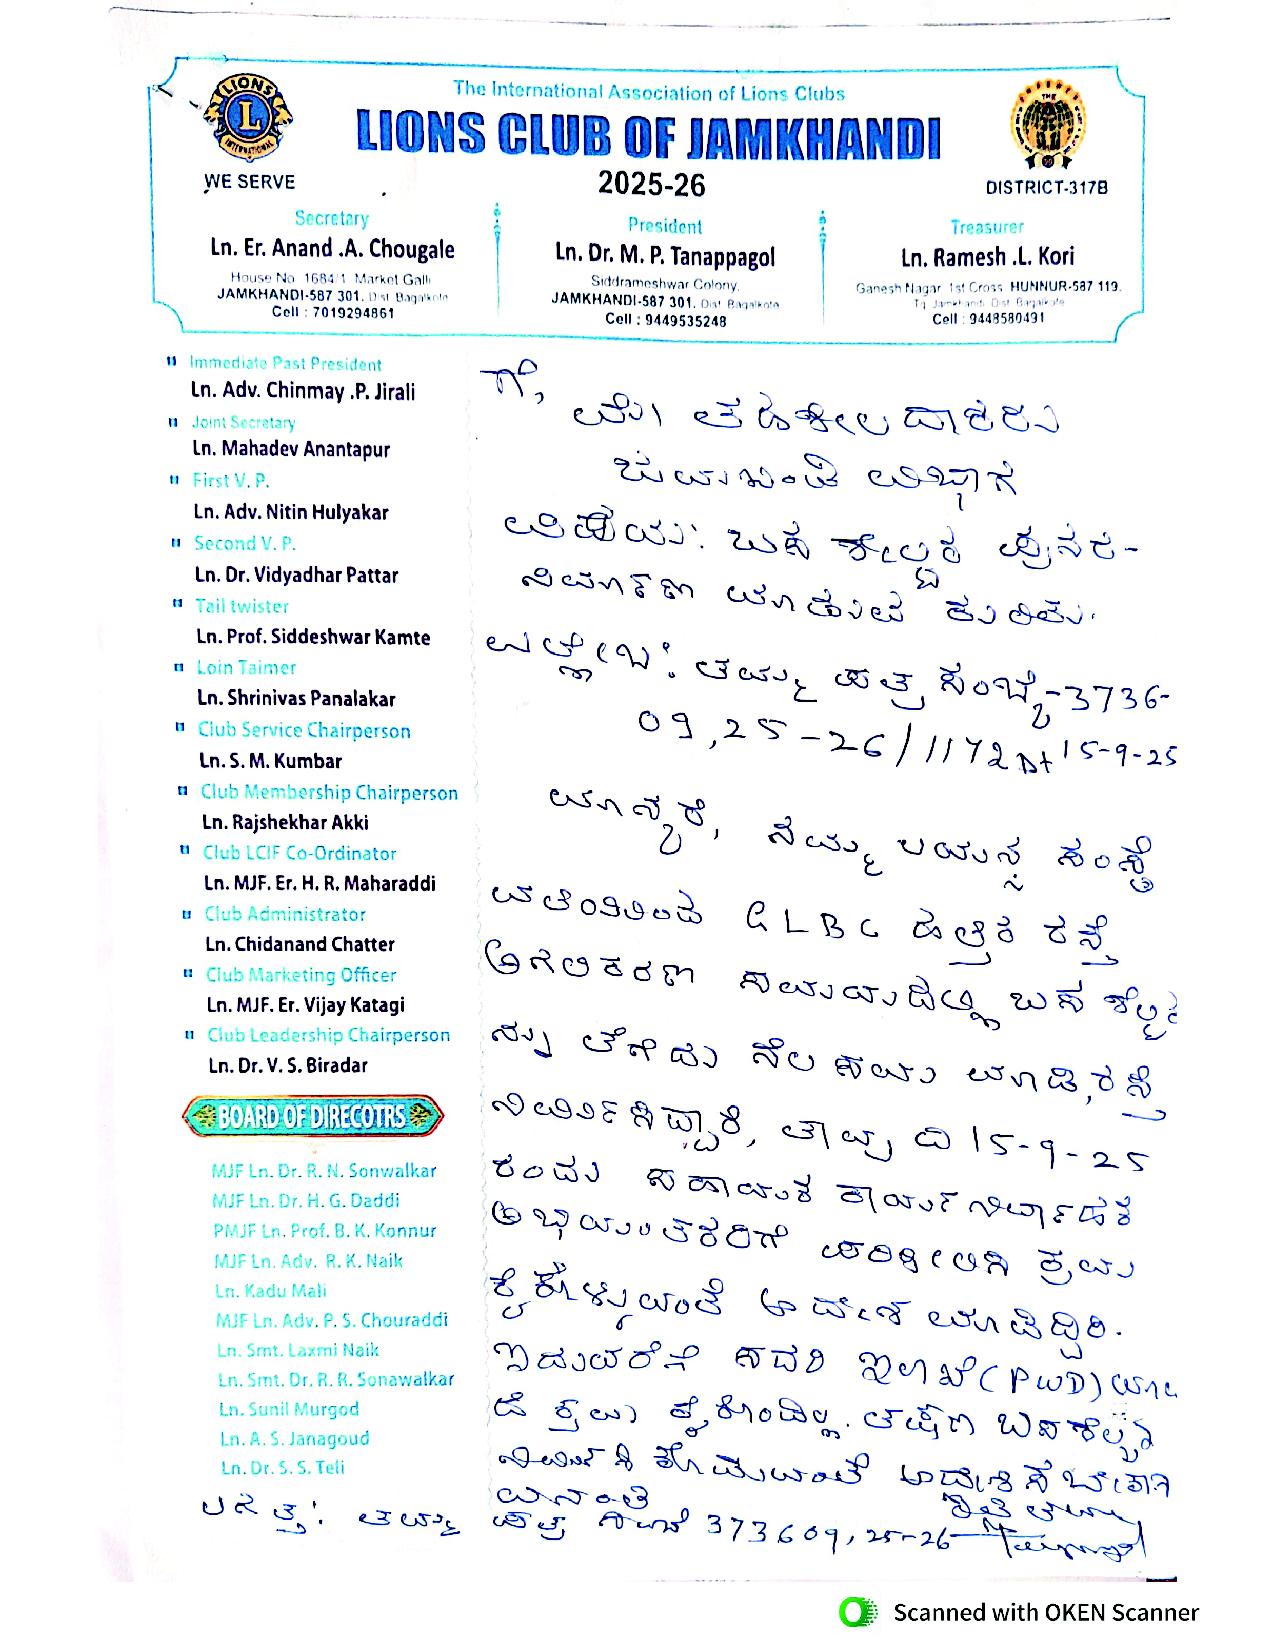 The International Association of Lions Clubs
LIONS CLUB OF JAMKHANDI
WE SERVE
2025-26
DISTRICT-317B
Secretary
Ln. Er. Anand .A. Chougale
House No 1684/1 Market Galli
JAMKHANDI-587 301. Dist Bagalkote
Cell : 7019294861
President
Ln. Dr. M. P. Tanappagol
Siddrameshwar Colony,
JAMKHANDI-587 301. Dist Bagalkote
Cell : 9449535248
Treasurer
Ln. Ramesh .L. Kori
Ganesh Nagar 1st Cross HUNNUR-587 119.
Tq Jamkhandi Dist Bagalkote
Cell : 9448580491
Immediate Past President
Ln. Adv. Chinmay .P. Jirali
Joint Secretary
Ln. Mahadev Anantapur
First V. P.
Ln. Adv. Nitin Hulyakar
Second V. P.
Ln. Dr. Vidyadhar Pattar
Tail twister
Ln. Prof. Siddeshwar Kamte
Loin Taimer
Ln. Shrinivas Panalakar
Club Service Chairperson
Ln. S. M. Kumbar
Club Membership Chairperson
Ln. Rajshekhar Akki
Club LCIF Co-Ordinator
Ln. MJF. Er. H. R. Maharaddi
Club Administrator
Ln. Chidanand Chatter
Club Marketing Officer
Ln. MJF. Er. Vijay Katagi
Club Leadership Chairperson
Ln. Dr. V. S. Biradar
BOARD OF DIRECOTRS
MJF Ln. Dr. R. N. Sonwalkar
MJF Ln. Dr. H. G. Daddi
PMJF Ln. Prof. B. K. Konnur
MJF Ln. Adv. R. K. Naik
Ln. Kadu Mali
MJF Ln. Adv. P. S. Chouraddi
Ln. Smt. Laxmi Naik
Ln. Smt. Dr. R. R. Sonawalkar
Ln. Sunil Murgod
Ln. A. S. Janagoud
Ln. Dr. S. S. Teli
ಗೆ,
ಮಾ। ತಹಶೀಲದಾರರು
ಜಮಖಂಡಿ ವಿಭಾಗ
ವಿಷಯ: ಬಸ ಶೇಲ್ಟರ ಪುನರ-
ನಿರ್ಮಾಣ ಮಾಡುವ ಕುರಿತು.
ಉಲ್ಲೇಖ: ತಮ್ಮ ಪತ್ರ ಸಂಖ್ಯೆ-3736-
09,25-26/1172 Dt 15-9-25
ಮಾನ್ಯರೆ, ನಮ್ಮ ಲಯನ್ಸ ಸಂಸ್ಥೆ
ವತಿಯಿಂದ GLBC ಹತ್ತಿರ ರಸ್ತೆ
ಅಗಲಿಕರಣ ಸಮಯದಲ್ಲಿ ಬಸ
ನ್ನು ತೆಗೆದು ನೆಲ ಸಮ ಮಾಡಿ,ರಸ್ತೆ
ನಿರ್ಮಿಸಿದ್ದಾರೆ, ತಾವು ದಿ 15-9-25
ರಂದು ಸಹಾಯಕ ಕಾರ್ಯನಿರ್ವಾಹಕ
ಅಭಿಯಂತರರಿಗೆ ಪರಿಶೀಲಿಸಿ ಕ್ರಮ
ಕೈಕೊಳ್ಳುವಂತೆ ಆದೇಶ ಮಾಡಿದ್ದಿರಿ.
ಇದುವರೆಗೆ ಸದರಿ ಇಲಾಖೆ(PWD) ಯಾವ
ದೆ ಕ್ರಮ ಕೈಕೊಂಡಿಲ್ಲ. ತಕ್ಷಣ
ನಿರ್ಮಿಸಿ ಕೊಡುವಂತೆ ಆದೇಶಿಸಬೇಕಾಗಿ
ವಿನಂತಿ
ಲಗತ್ತು: ತಮ್ಮ ಪತ್ರ ಸಂಖ್ಯೆ 373609,25-26
Scanned with OKEN Scanner